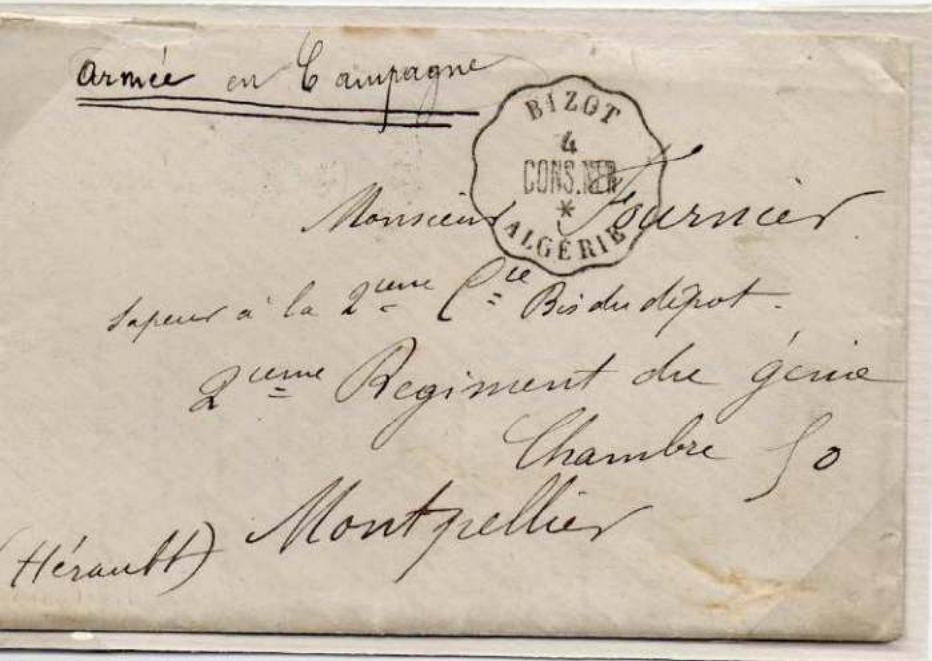 Armée en Campagne
BIZOT
4
CONS.
*
ALGÉRIE
Monsieur Fournier
Sapeur à la 2ieme Cie Bis du dépot.
2ieme Regiment du génie
Chambre 50
(Hérault) Montpellier